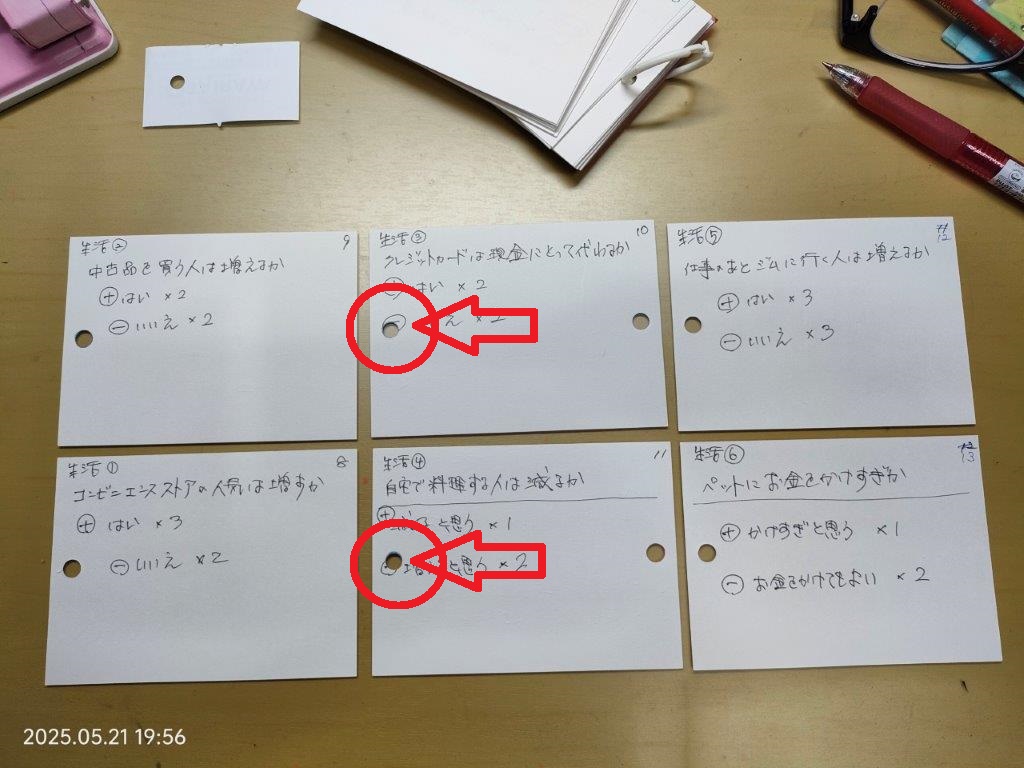 生活②
9
中古品を買う人は増えるか
⊕はい ×2
⊖いいえ ×2
生活③
10
クレジットカードは現金にとって代わるか
はい ×2
え ×2
生活⑤
12
仕事のあとジムに行く人は増えるか
⊕ はい ×3
⊖ いいえ ×3
生活①
8
コンビニエンスストアの人気は増すか
⊕ はい ×3
⊖ いいえ ×2
生活④
11
自宅で料理する人は減るか
⊕ と思う ×1
と思う ×2
生活⑥
13
ペットにお金をかけすぎか
⊕ かけすぎと思う ×1
⊖ お金をかけてもよい ×2
2025.05.21 19:56